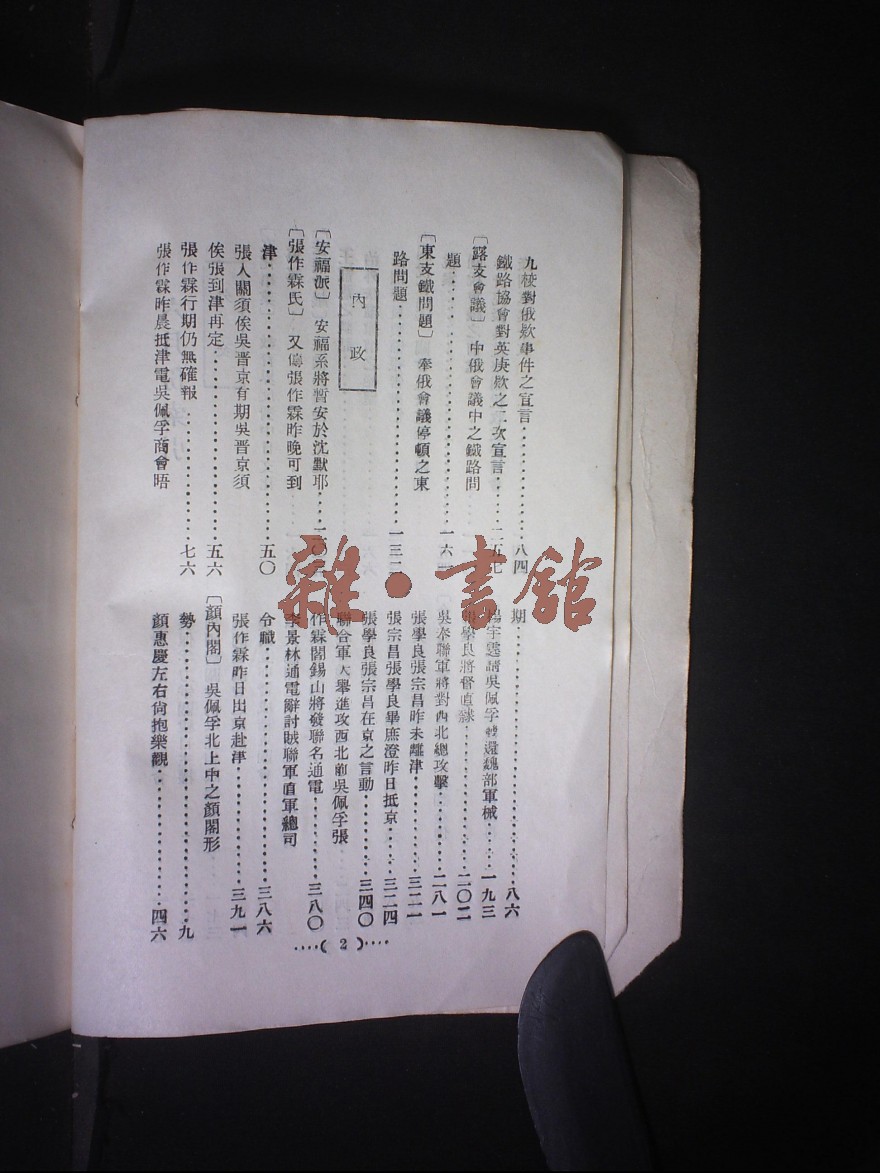 九校對俄欵事件之宣言⋯⋯⋯⋯八四
鐵路協會對英庚欵之二次宣言⋯⋯二五七
〔露支會議〕 中俄會議中之鐵路問
題⋯⋯⋯⋯一六
〔東支鐵問題〕 奉俄會議停頓之東
路問題⋯⋯⋯⋯一三二
內政
〔安福派〕 安福系將暫安於沈默耶⋯⋯一〇
〔張作霖氏〕 又傳張作霖昨晚可到
津⋯⋯⋯⋯五〇
張人關須俟吳晋京有期吳晋京須
俟張到津再定⋯⋯⋯⋯五六
張作霖行期仍無確報⋯⋯⋯⋯七六
張作霖昨晨抵津電吳佩孚商會晤
期⋯⋯⋯⋯八六
楊宇霆請吳佩孚轉還魏部軍械⋯⋯一九三
張學良將督直隸⋯⋯⋯⋯二〇二
吳奉聯軍將對西北總攻擊⋯⋯⋯⋯二八一
張學良張宗昌昨未離津⋯⋯⋯⋯三二一
張宗昌張學良畢庶澄昨日抵京⋯⋯三二四
張學良張宗昌在京之言動⋯⋯⋯⋯三四〇
聯合軍大舉進攻西北前吳佩孚張
作霖閻錫山將發聯名通電⋯⋯⋯⋯三八〇
李景林通電辭討賊聯軍直軍總司
令職⋯⋯⋯⋯三八六
張作霖昨日出京赴津⋯⋯⋯⋯三九一
〔顏內閣〕 吳佩孚北上中之顏閣形
勢⋯⋯⋯⋯九
顏惠慶左右尙抱樂觀⋯⋯⋯⋯四六
⋯⋯( 2 )⋯⋯
雜·書館